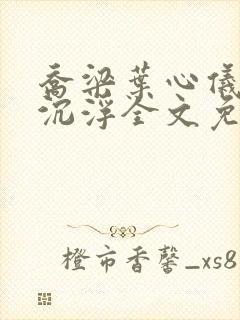 乔梁葉心儀
沉浮全文免
橙市香馨_xs8